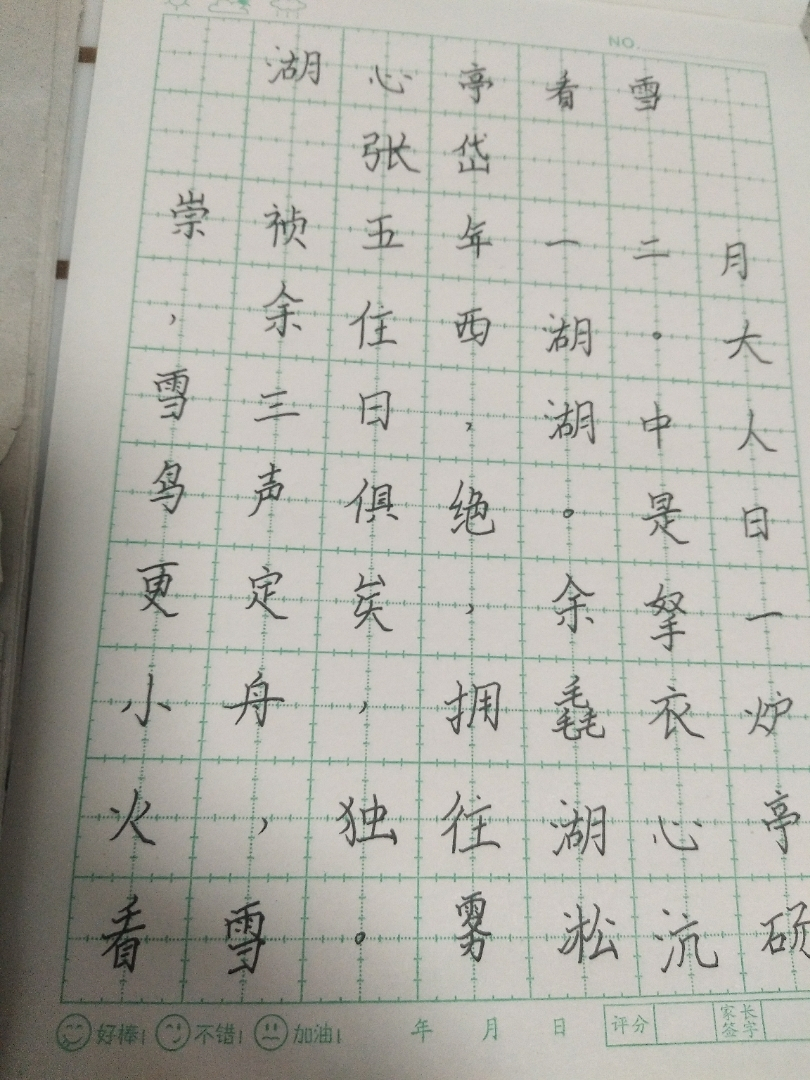 NO.
湖心亭看雪
张岱
崇祯五年一二月
，余住西湖。大
雪三日，湖中人
鸟声俱绝。是日
更定矣，余拏一
小舟，拥毳衣炉
火，独往湖心亭
看雪。雾淞沆硕
好棒！ 不错！ 加油！ 年 月 日 评分 家长签字